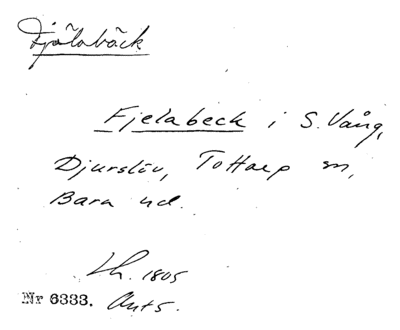 Fjälabäck
Fjelabeck i S. Vång,
Djurslöv, Tottarp sn,
Bara hd.
Lh. 1805
Nr 6333. Akt 5.